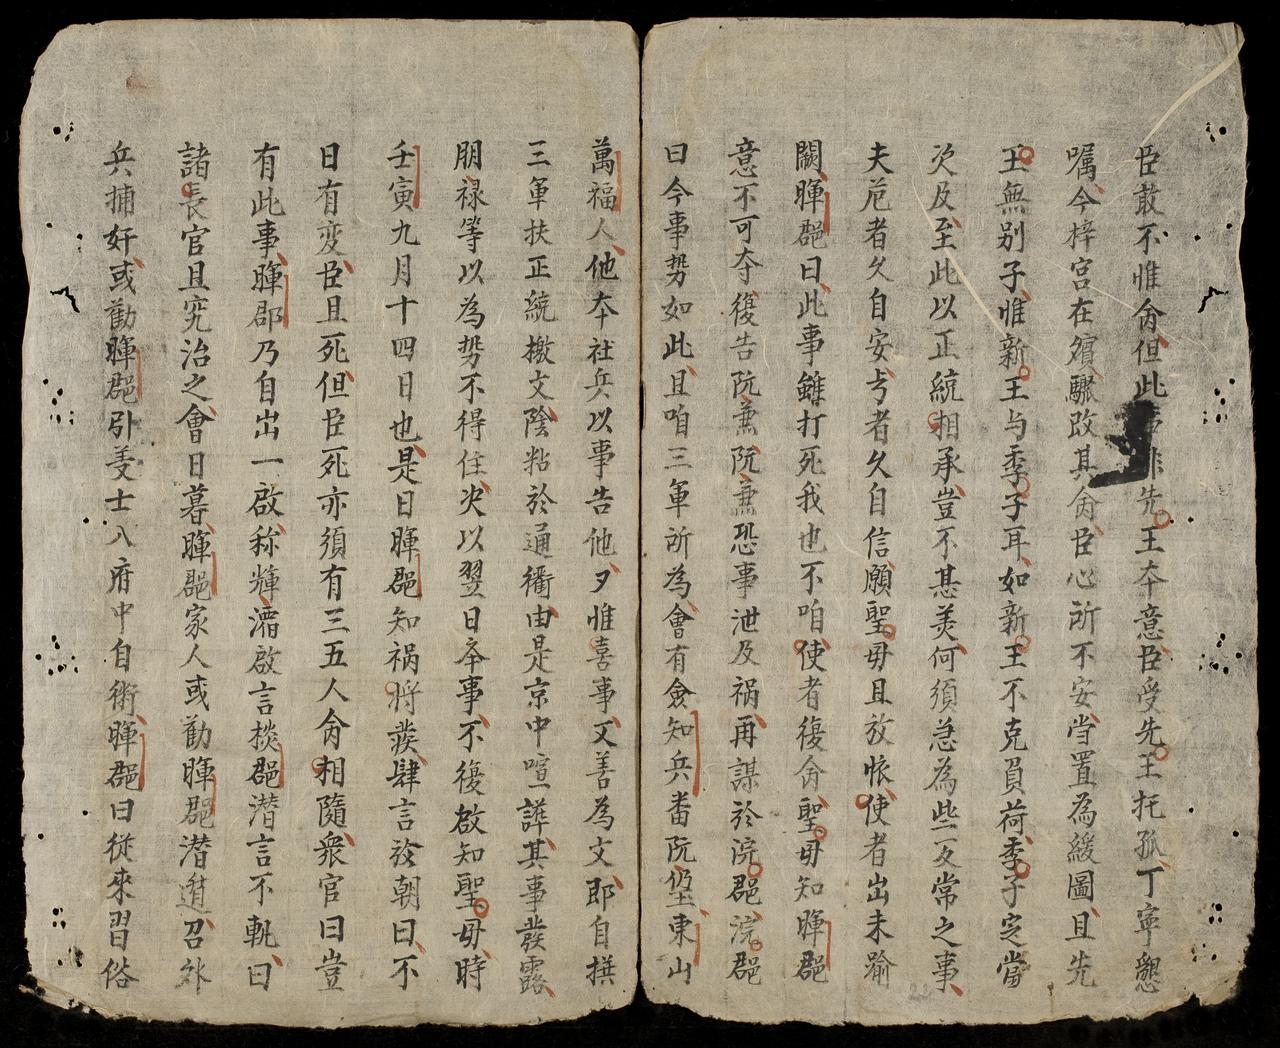 臣敢不惟命但此事非先王夲意臣受先王托孤丁寧懇
嘱今梓宮在殯驟改其命臣心所不安当置為緩圖且先
王無别子惟新王与季子耳如新王不克負荷季子定當
次及至此以正統相承豈不甚羙何須急為些反常之事
夫危者久自安亏者久自信願聖毋且放懷使者出未踰
闕暉郡曰此事雖打死我也不咱使者復命聖毋知暉郡
意不可夺復告阮兼阮兼恐事泄及禍再謀於浣郡浣郡
曰今事势如此且咱三軍所為會有僉知兵畨阮堃東山
萬福人他夲社兵以事告他夕惟喜事又善為文即自撰
三軍扶正統檄文陰粘於通衢由是京中喧譁其事發露
朋禄等以為势不得住决以翌日举事不復啟知聖毋時
壬寅九月十四日也是日暉郡知禍將發肆言於朝曰不
日有变臣且死但臣死亦須有三五人命相隨衆官曰豈
有此事暉郡乃自出一啟称輝湑啟言棪郡潜言不軌曰
諸長官且究治之會日暮暉郡家人或勸暉郡潜遁召外
兵捕奸或勸暉郡引羙士入府中自衛暉郡曰從來習俗